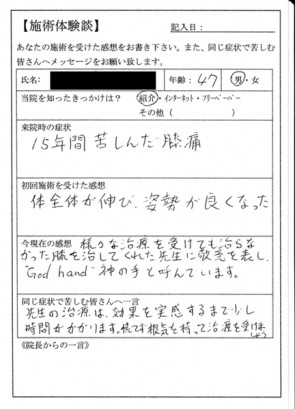 【施術体験談】
記入日：
あなたの施術を受けた感想をお書き下さい。また、同じ症状で苦しむ
皆さんへメッセージをお願い致します。
氏名:
年齢：47
男・女
当院を知ったきっかけは？
紹介・インターネット・フリーペーパー
その他（　　　）
来院時の症状
15年間苦しんだ膝痛
初回施術を受けた感想
体全体が伸び、姿勢が良くなった
今現在の感想 様々な治療を受けても治らな
かった膝を治してくれた先生に敬意を表し、
"God hand"神の手と呼んでいます。
同じ症状で苦しむ皆さんへ一言
先生の治療は、効果を実感するまで少し
時間がかかります。根気を持って治療を受けましょう
《院長からの一言》